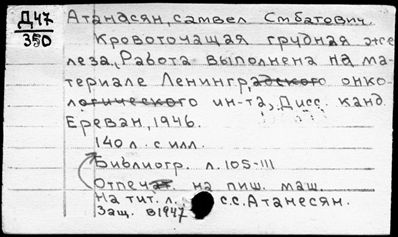 Д47
350
Атанасян, самвел Смбатович.
Кровоточащая грудная же
леза. Работа выполнена на ма-
териале Ленинградского онко-
логического ин-та, Дисс. канд.
Ереван, 1946.
140 л. с илл.
Библиогр. л. 105-111
Отпеч. на пиш. маш.
На тит. л. с.с. Атанесян.
Защ. в 1947